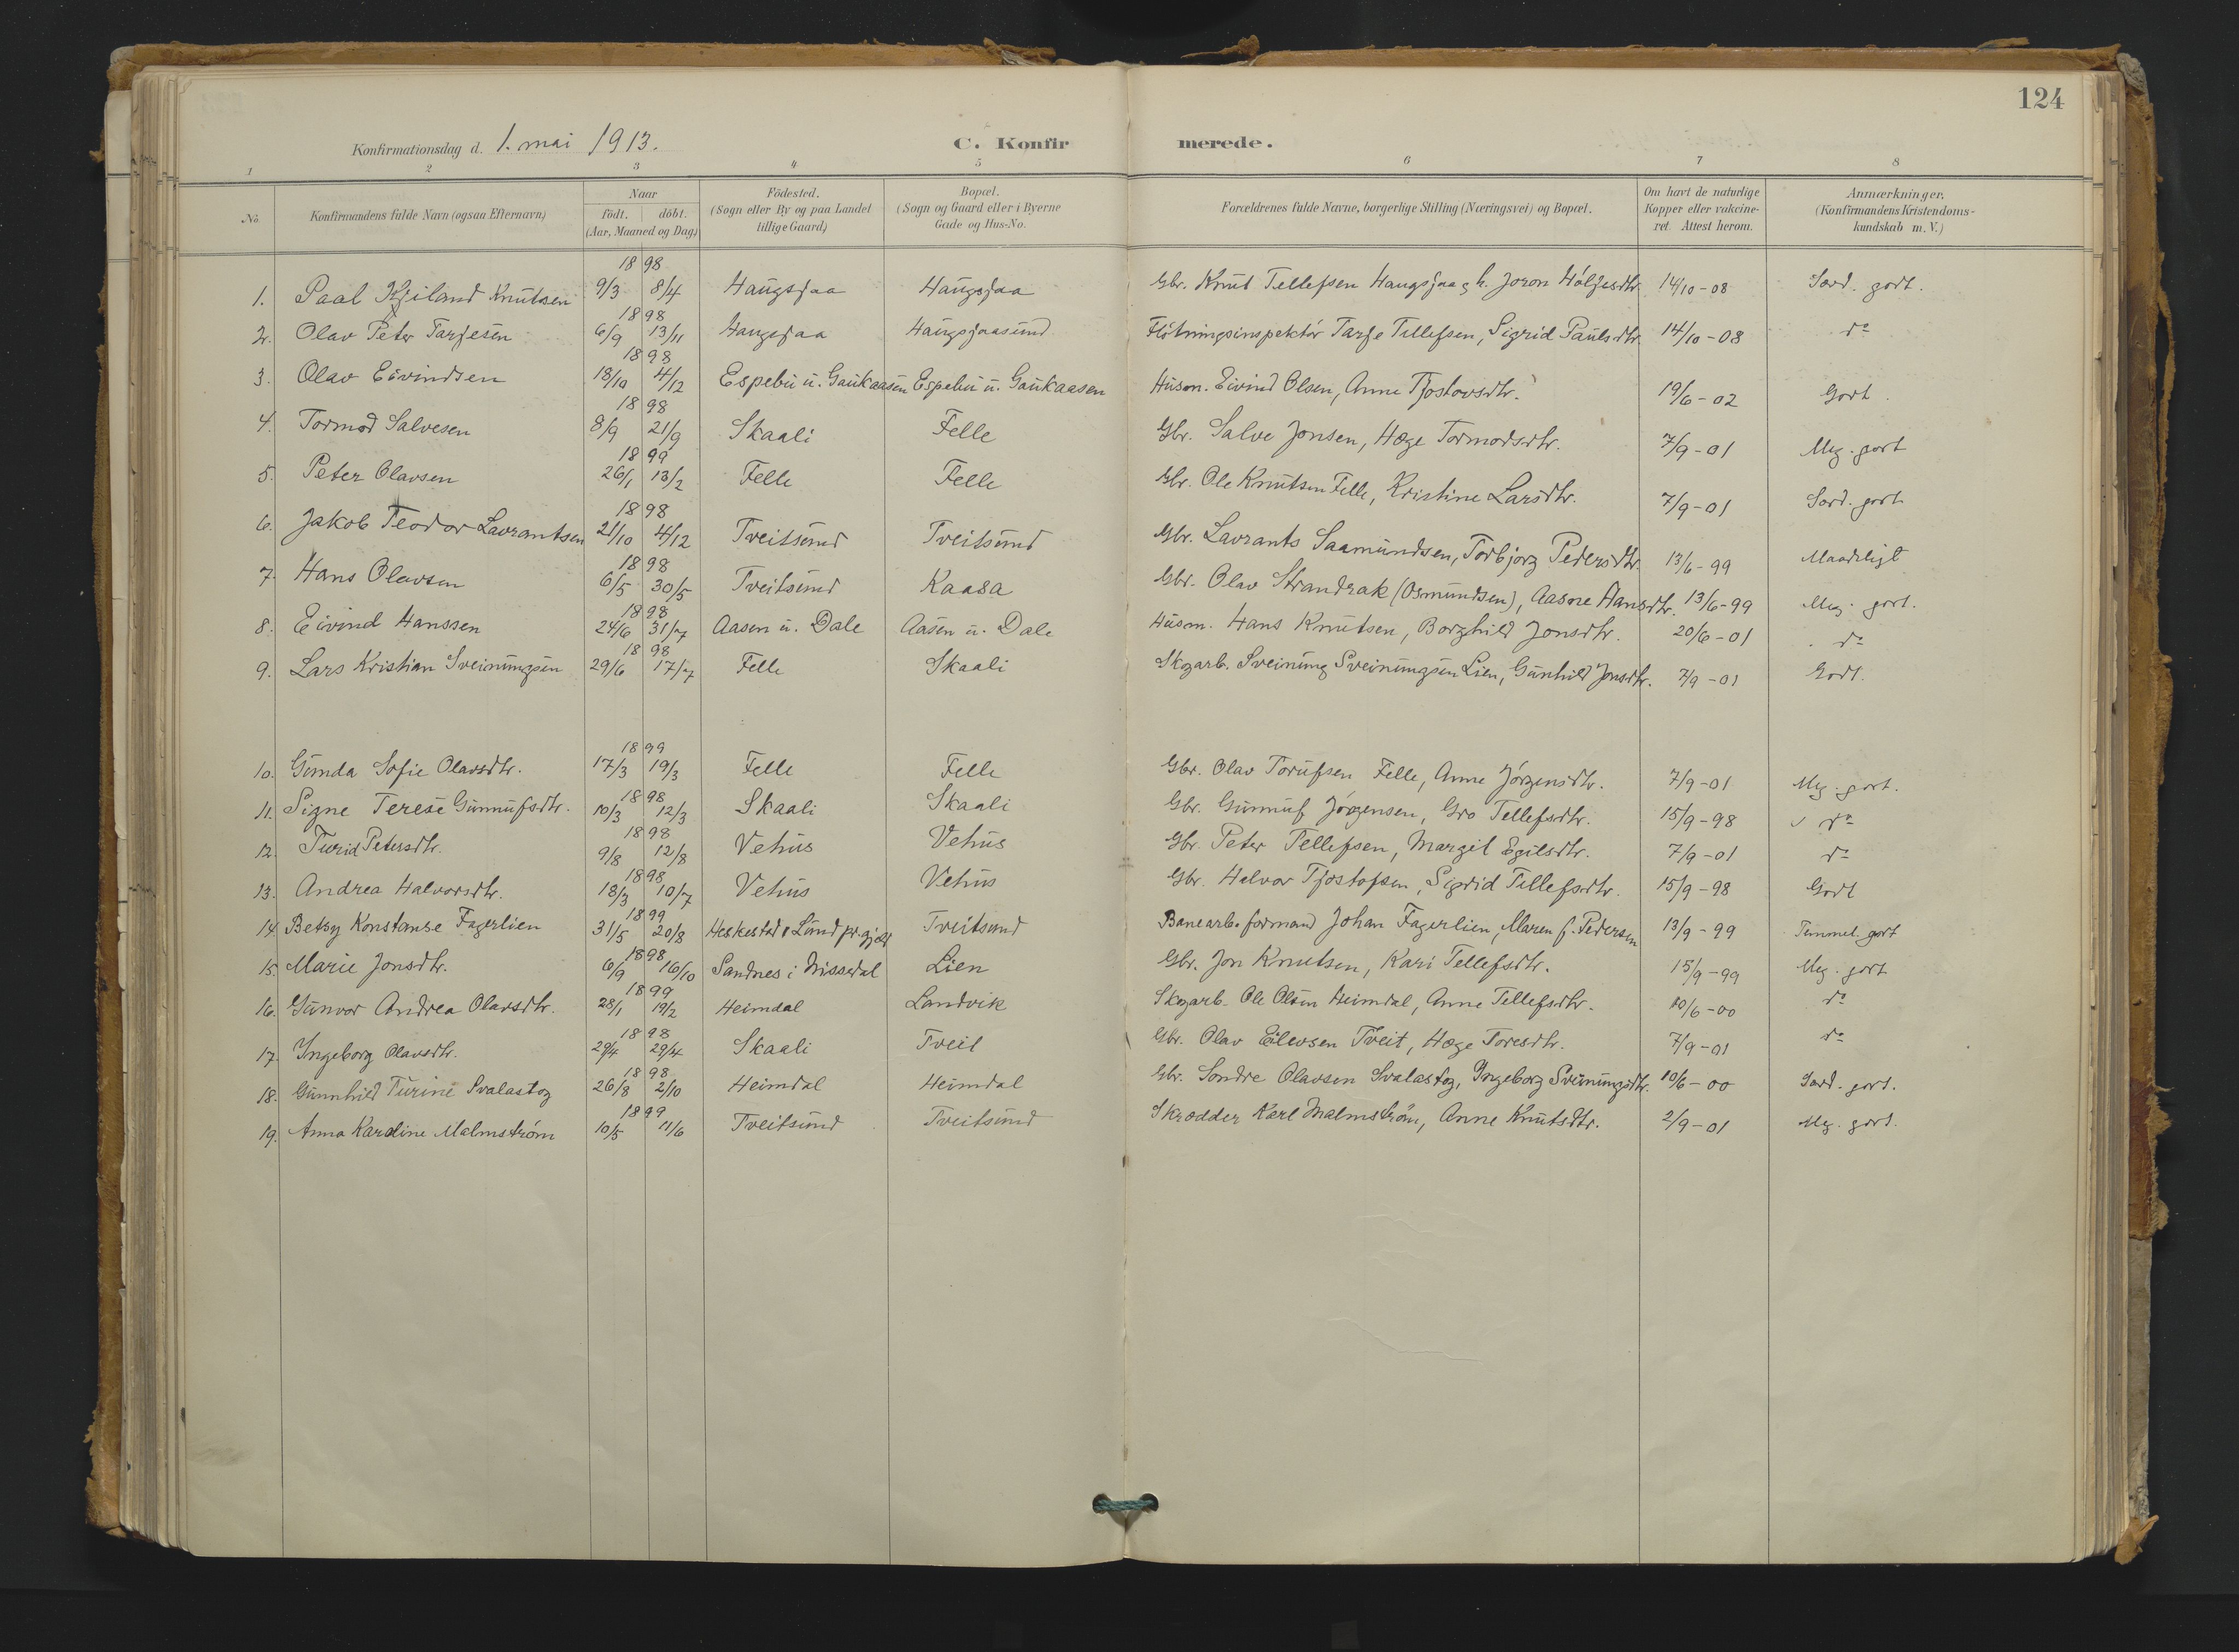 124
Konfirmationsdag d. 1. mai 1913. C. Konfirmerede.
1 2 3 4 5 6 7 8
No. Konfirmandens fulde Navn (ogsaa Efternavn) Naar födt. döbt. (Aar, Maaned og Dag) Födested. (Sogn eller By og paa Landet tillige Gaard) Bopæl. (Sogn og Gaard eller i Byerne Gade og Hus-No. Forældrenes fulde Navne, borgerlige Stilling (Næringsvei) og Bopæl. Om havt de naturlige Kopper eller vakcineret. Attest herom. Anmærkninger. (Konfirmandens Kristendomskundskab m.V.)
1898
1. Paal Kjiland Knutsen 9/3 8/4 Haugsjaa Haugsjaa Gbr. Knut Tellefsen Haugsjaa g h. Joron Hóljesdtr. 14/10-08 Særd. godt.
1898
2. Olav Peter Tarjesen 6/9 13/11 Haugsjaa Haugsjaasund Flötningsinspektör Tarje Tellefsen, Sigrid Paulsdtr. 14/10-08 do
1898
3. Olav Eivindsen 18/10 4/12 Espebu u. Gaukaasen Espebu u. Gaukaasen Husm. Eivind Olsen, Anne Tjostovsdtr. 19/6-02 Godt.
1898
4. Tormod Salvesen 8/9 21/9 Skaali Felle Gbr. Salve Jonsen, Hæge Tormodsdtr. 7/9-01 Meg. godt
1899
5. Peter Olavsen 26/1 13/2 Felle Felle Gbr. Ole Knutsen Felle, Kristine Larsdtr. 7/9-01 Særd. godt
1898
6. Jakob Teodor Lavrantsen 21/10 4/12 Tveitsund Tveitsund Gbr. Lavrants Saamundsen, Torbjorg Pedersdtr. 13/6-99 Maadeligt
1898
7. Hans Olavsen 6/5 30/5 Tveitsund Kaasa Gbr. Olav Strandrak (Osmundsen), Aasne Hansdtr. 13/6-99 Meg. godt.
1898
8. Eivind Hanssen 24/6 31/7 Aasen u. Dale Aasen u. Dale Husm. Hans Knutsen, Borghild Jonsdtr. 20/6-01 do
1898
9. Lars Kristian Sveinungsen 29/6 17/7 Felle Skaali Skogarb. Sveinung Sveinungsen Lien, Gunhild Jonsdtr. 7/9-01 Godt.
1899
10. Gunda Sofie Olavsdtr. 17/3 19/3 Felle Felle Gbr. Olav Torufsen Felle, Anne Jörgensdtr. 7/9-01 Meg. godt.
1898
11. Signe Terese Gunnufsdtr. 10/3 12/3 Skaali Skaali Gbr. Gunnuf Jörgensen, Gro Tellefsdtr. 15/9-98 do
1898
12. Turid Petersdtr. 9/8 12/8 Vehus Vehus Gbr. Peter Tellefsen, Margit Egilsdtr. 7/9-01 do
1898
13. Andrea Halvorsdtr. 18/3 10/7 Vehus Vehus Gbr. Halvor Tjostofsen, Sigrid Tellefsdtr. 15/9-98 Godt
1899
14. Betsy Konstanse Fagerlien 31/5 20/8 Heskestad i Lund pr.gjeld Tveitsund Banearb.formand Johan Fagerlien, Maren f. Pedersen 13/9-99 Temmel. godt
1898
15. Marie Jonsdtr. 6/9 16/10 Sandnes i Nissedal Lien Gbr. Jon Knutsen, Kari Tellefsdtr. 15/9-99 Meg. godt
1899
16. Gunvor Andrea Olavsdtr. 28/1 19/2 Heimdal Landvik Skogarb. Ole Olsen Heimdal, Anne Tellefsdtr. 10/6-00 do
1898
17. Ingeborg Olavsdtr. 29/4 29/4 Skaali Tveit Gbr. Olav Eilevsen Tveit, Hæge Toresdtr. 7/9-01 do
1898
18. Gunnhild Turine Svalastog 26/8 2/10 Heimdal Heimdal Gbr. Sondre Olavsen Svalastog, Ingeborg Sveinungsdtr. 10/6-00 Særd. godt.
1899
19. Anna Karoline Malmström 10/5 11/6 Tveitsund Tveitsund Skrædder Karl Malmström, Anne Knutsdtr. 2/9-01 Meg. godt.